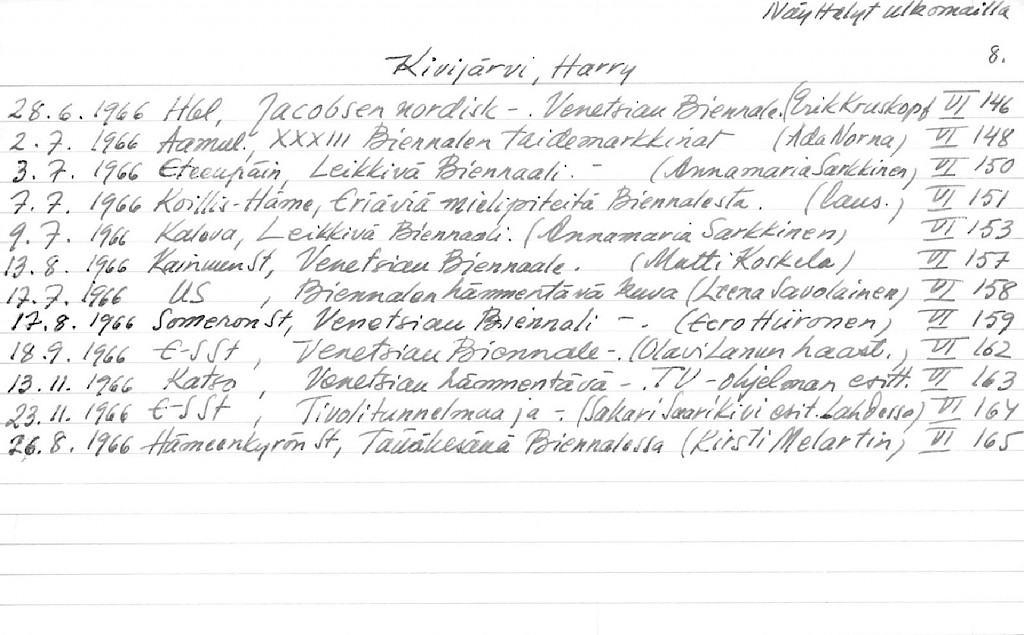 Näyttelyt ulkomailla
8.
Kivijärvi, Harry
28.6.1966 Hbl, Jacobsen nordisk -. Venetsian Biennale. (Erik Kruskopf VI 146
2.7.1966 Aamul., XXXIII Biennalen taidemarkkinat (Ada Norna) VI 148
3.7.1966 Eteenpäin, Leikkivä Biennaali. - (Annamaria Sarkkinen) VI 150
7.7.1966 Koillis-Häme, Eriäviä mielipiteitä Biennalesta. (Caus.) VI 151
9.7.1966 Kaleva, Leikkivä Biennaali. (Annamaria Sarkkinen) VI 153
13.8.1966 Kainuun St, Venetsian Biennaale. (Matti Koskela) VI 157
17.7.1966 US, Biennalen hämmentävä kuva (Leena Savolainen) VI 158
17.8.1966 Someron St, Venetsian Biennali -. (Eero Hiironen) VI 159
18.9.1966 E-SSt, Venetsian Biennale-. (Olavi Lanun haast.) VI 162
13.11.1966 Katso, Venetsian hämmentävä -. TV-ohjelman esitt. VI 163
23.11.1966 E-SSt, Tivolitunnelmaa ja -. (Sakari Saarikivi esit. Lahdessa) VI 164
26.8.1966 Hämeenkyrön St, Tänäkesänä Biennalessa (Kirsti Melartin) VI 165